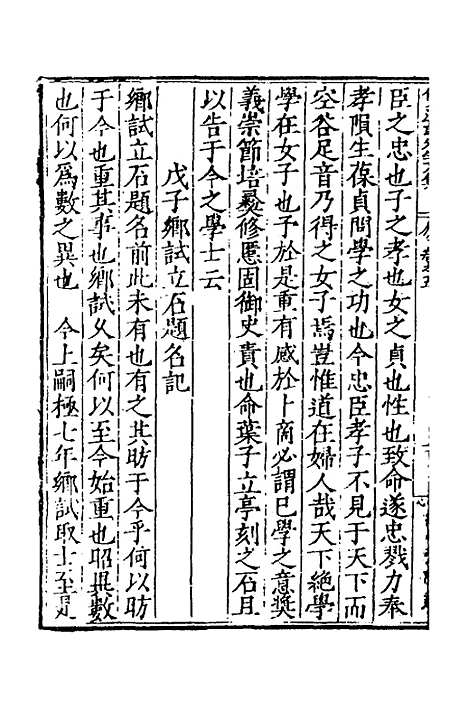 臣之忠也子之孝也女之貞也性也致命遂忠戮力奉
孝隕生葆貞問學之功也今忠臣孝子不見于天下而
空谷足音乃得之女子焉豈惟道在婦人哉天下絶學
學在女子也予於是重有感於卜商必謂已學之意奬
義崇節培彝修慝固御史責也命葉子立亭刻之石且
以告于今之學士云
戊子鄉試立石題名記
鄉試立石題名前此未有也有之其昉于今乎何以昉
于今也重其事也鄉試久矣何以至今始重也昭異數
也何以爲數之異也 今上嗣極七年鄉試取士至是